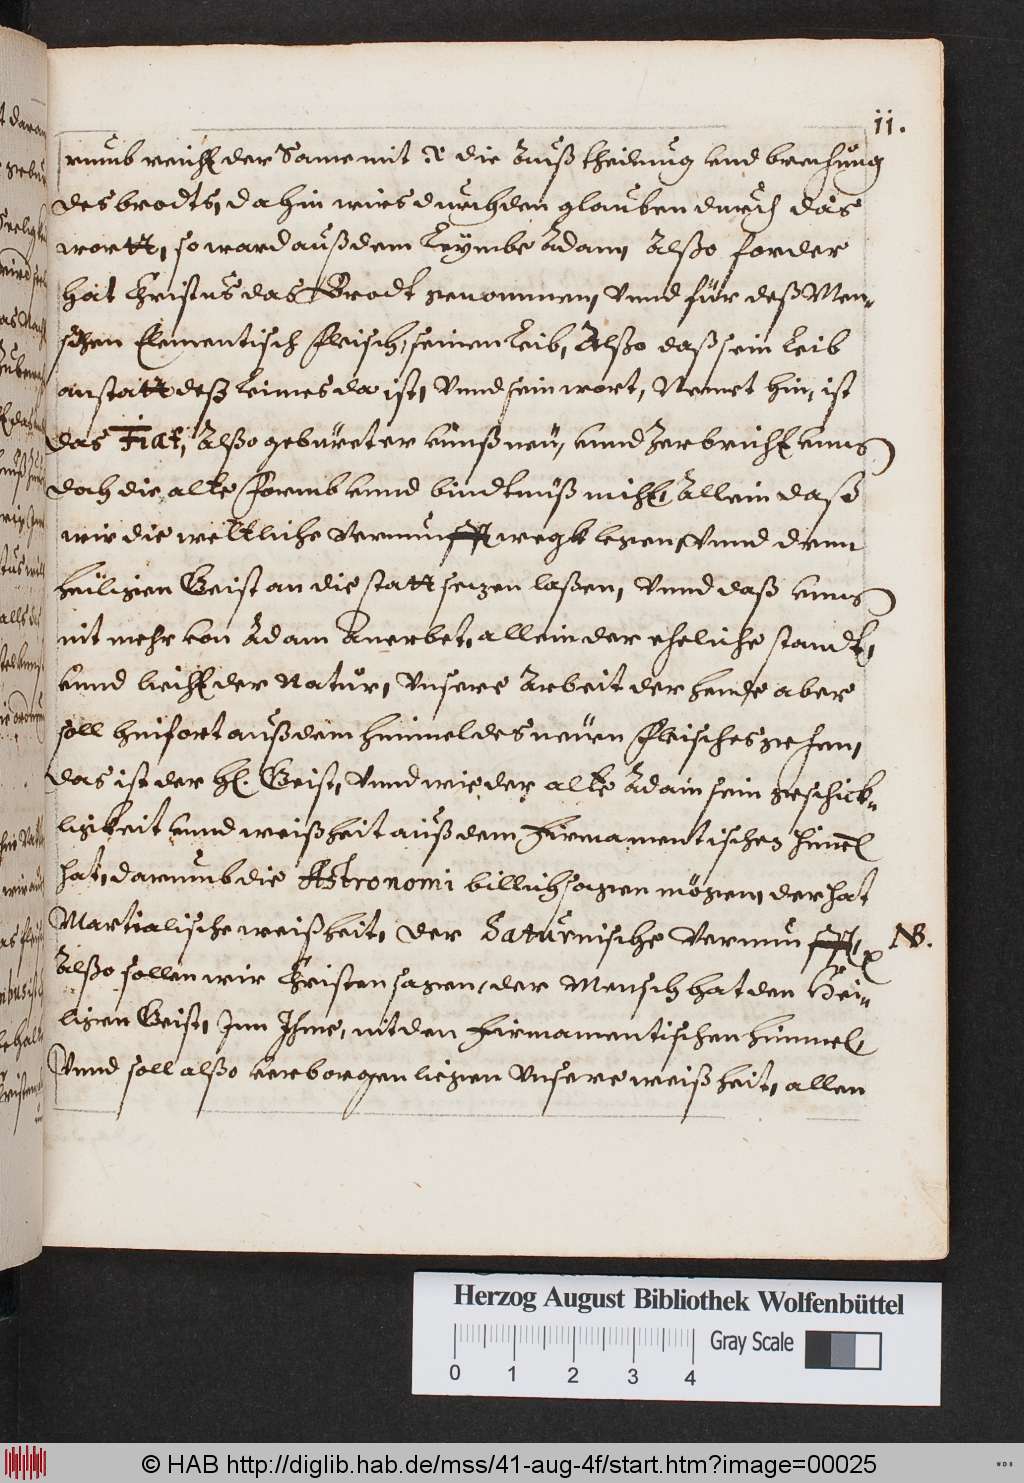 ii.
rumb reicht der Same mit die Außtheilung vnd brechung
des brodts, dahin wirs durch den glauben durch das
wortt, so ward auß dem Leymbe Adam, Alßo forder
hat Christus das Brodt genommen, Vnnd für deß Men-
schen Elementisch fleisch, seinen Leib, Alßo daß sein Leib
anstatt deß Leimes da ist, Vnnd sein wort, Nemet hin, ist
das Fiat, Alßo gebüret er vnnß neu, vnnd Zerbricht vnns
doch die alte formb vnnd bindtnüß nicht, Allein daß
wir die weltliche Vernunfft wegk legen, Vnnd denn
heiligen Geist an die statt sezen laßen, Vnnd daß vnns
nit mehr von Adam Anerbet, allein der eheliche standt,
vnnd liecht der Natur, Vnsere Arbeit der hende aber
soll hinfort auß dem himmel des neuen fleisches gehen,
das ist der hl. Geist, Vnnd wie der alte Adam sein geschick-
ligkeit vnnd weißheit auß dem Firmamentischen himel
hat, darumb die Astronomi billich sagen mögen, der hat
Martialische weißheit, der Saturnische Vernunfft,
NB.
Alßo sollen wir Christen sagen, der Mensch hat den Hei-
ligen Geist, Inn Ihme, nit den Firmamentischen himmel,
Vnnd soll alßo verborgen liegen Vnsere weißheit, allen
Herzog August Bibliothek Wolfenbüttel
Gray Scale
0 1 2 3 4
© HAB http://diglib.hab.de/mss/41-aug-4f/start.htm?image=00025